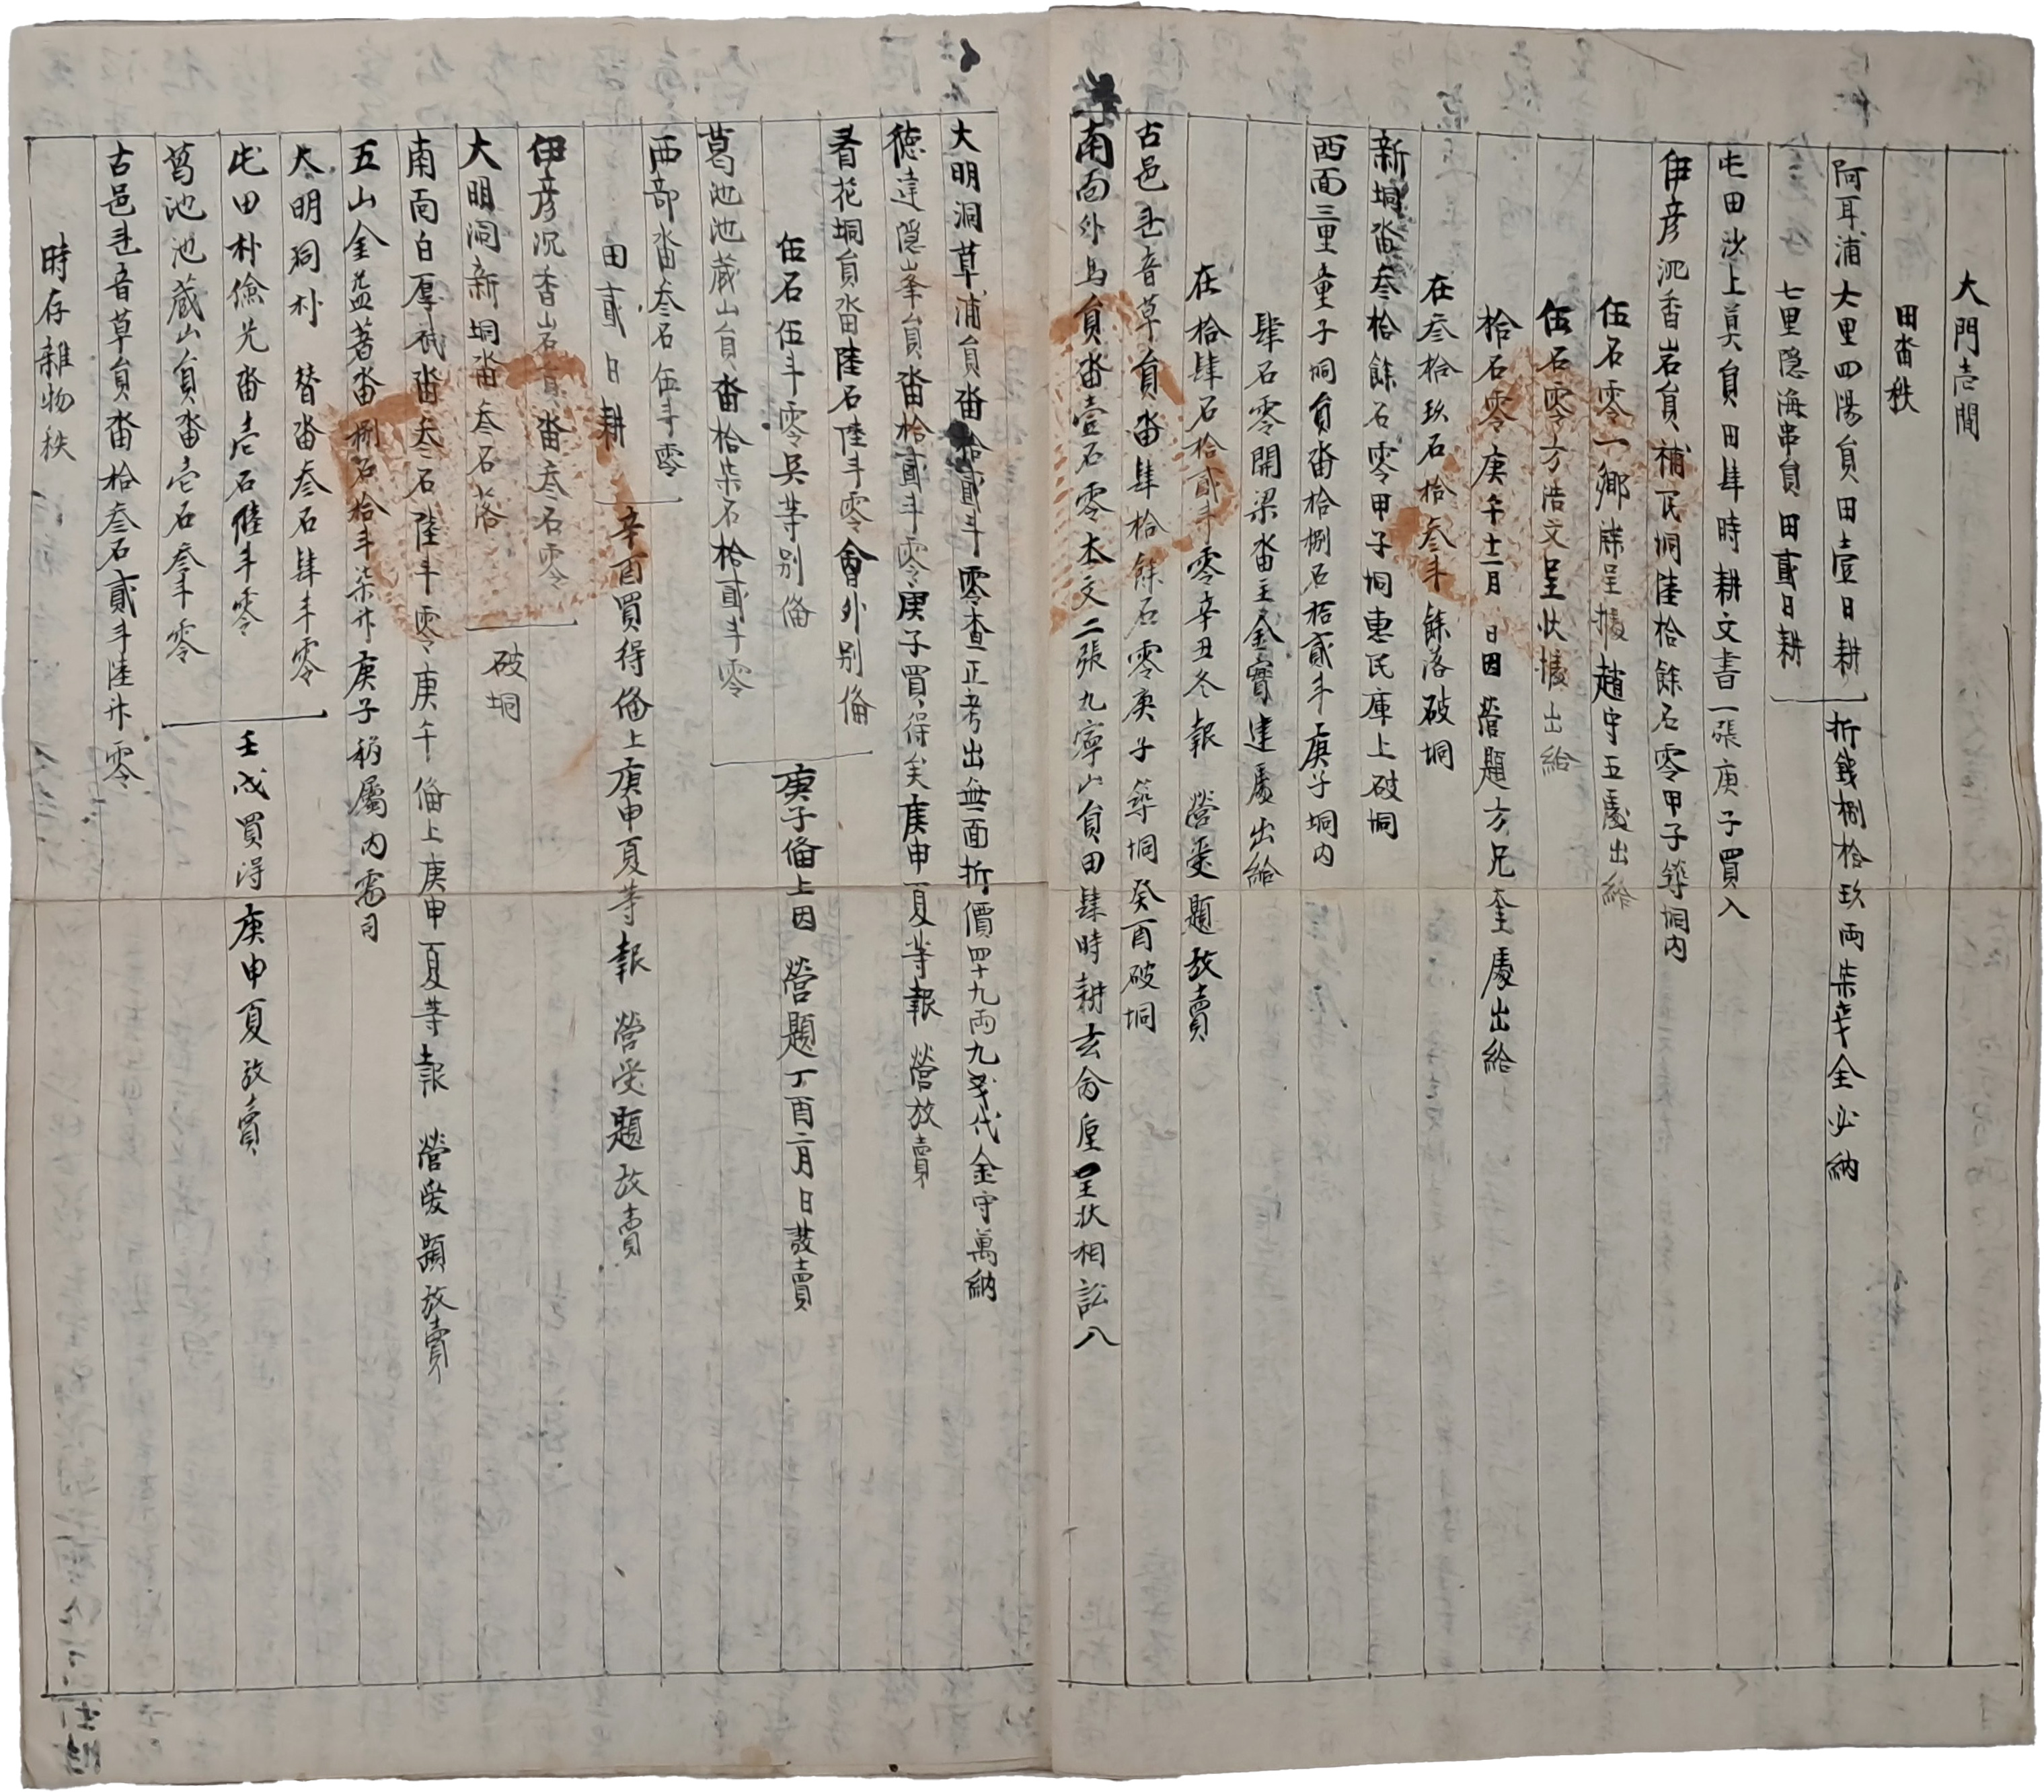 大門壱間
田畓秩
阿耳浦大里四陽員田壹日耕
七里隠海串員田貳日耕
折錢捌拾玖両柒戔全必納
屯田沙上員田肆時耕文書一張庚子買入
伊彦沉香岩員補民垌陸拾餘石零甲子築垌內
伍石零一鄉呈據趙守五處出給
伍石零方浩文呈状據出給
拾石零庚午十二月 日因 營題方允奎處出給
在叁拾玖石拾叁斗餘落破垌
新垌畓叁拾餘石零甲子垌惠民庫上破垌
西面三里童子垌員畓拾捌石拾貳斗庚子垌內
肆石零開梁畓主金實建處出給
在拾肆石拾貳斗零辛丑冬報 營受題放賣
古邑音草員畓肆拾餘石零庚子築垌癸酉破垌
南面外島員畓壹石零本文二張九寧山員田肆時耕玄呈状相訟入
大明洞草浦員畓拾貳斗零查正考出無面折價四十九両九戔代金守萬納
德達隠峯員畓拾貳斗零庚子買得矣庚申夏等報 營放賣
看花垌員畓陸石陸斗零會外別備
伍石伍斗零吳等別備
葛池池蔵山員畓拾柒石拾貳斗零
庚子備上因 營題丁酉二月日發賣
西部畓叁石伍斗零
田貳日耕
辛酉買得備上庚申夏等報 營受題放賣
伊彦沉香岩員畓叁石零
大明洞新垌畓叁石落
破垌
南面白厚畓叁石陸斗零庚午備上庚申夏等報 營受題放賣
五山金益著畓捌石拾斗柒升庚子移屬內需司
大明洞朴 替畓叁石肆斗零
屯田朴儉光畓壱石陸斗零
葛池池蔵山員畓壱石叁斗零
壬戌買得庚申夏放賣
古邑音草員畓拾叁石貳斗陸升零
時存雜物秩